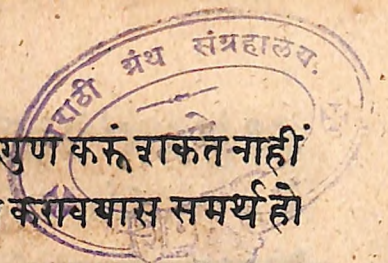 मराठी ग्रंथ संग्रहालय.
गुण करूं शकत नाहीं
करावयास समर्थ हो